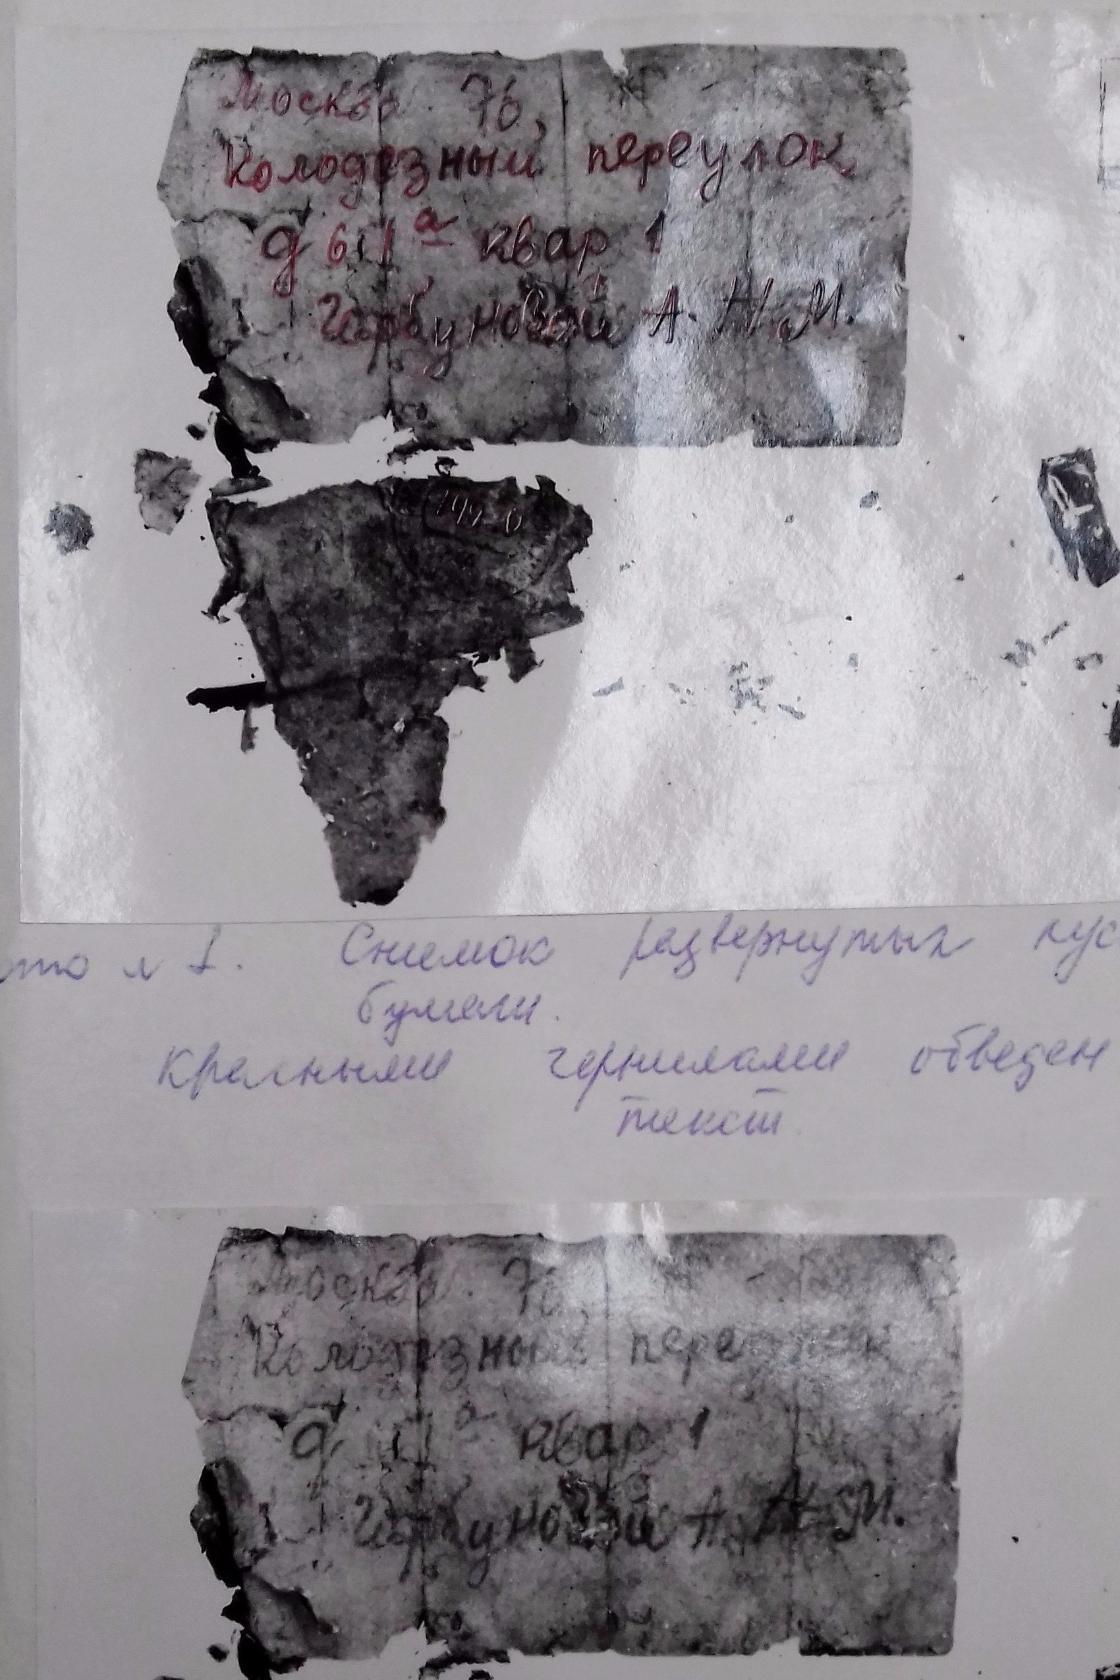 Москва 76,
Колодезный переулок
д 6 11 а квар 1
Горбуновой А. Н. М.
Снимок развернутых
бумаги.
Красными чернилами обведен
текст.
Москва 76,
Колодезный переулок
д 11 а квар 1
Горбуновой А. Н. М.